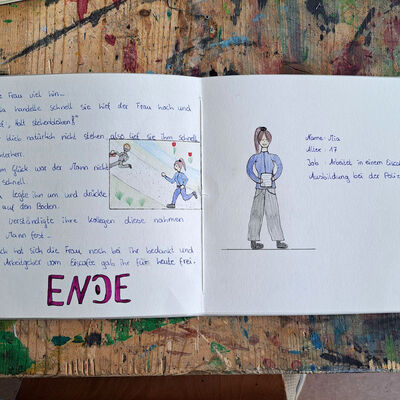 e Frau viel hin...
a handelte schnell sie lief der Frau hoch und
ef „Halt stehenbleiben!"
blieb natürlich nicht stehen also lief sie ihm schnell
interher.
m Glück war der Mann nicht
schnell
legte ihn um und drückte
auf den Boden.
verständigte ihre Kollegen diese nahmen
Mann fest.
ch hat sich die Frau noch bei ihr bedankt und
Arbeitgeber vom Eiscafe gab ihr fürs heute frei.
ENDE
Name: Mia
Alter: 17
Job: Arbeitet in einem Eiscafe
Ausbildung bei der Polize